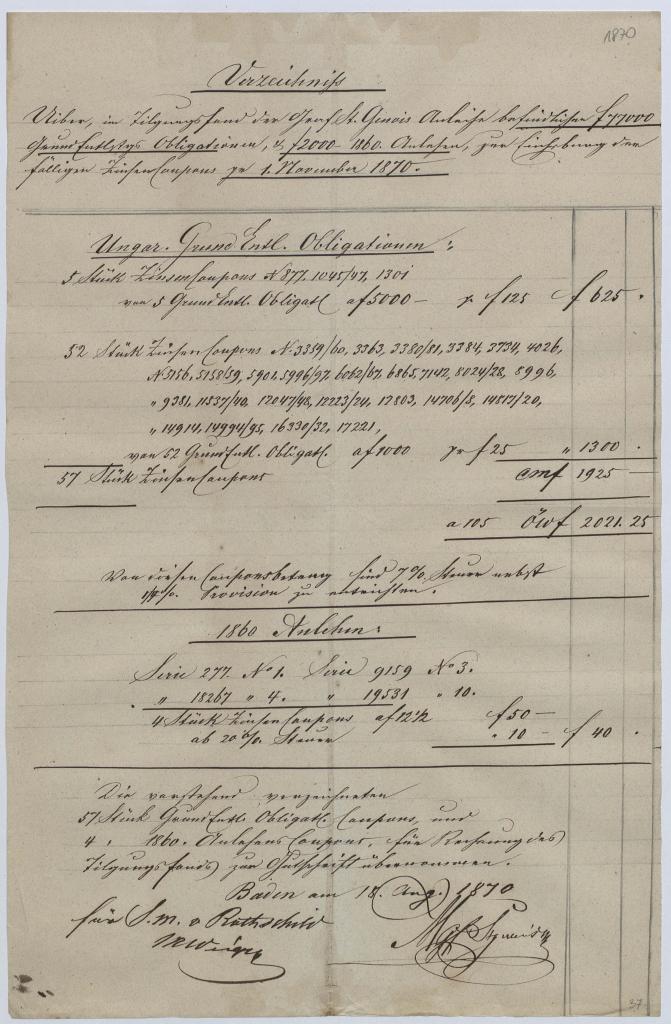 1870
Verzeichniß
Uiber, im Tilgungsfond der Graf St. Genois Anleihe befindlichen f 77000
Grund Entlstgs Obligationen, & f 2000 – 1860. Anlehen, zur Einhebung der
fälligen Zinsen Coupons pr 1. November 1870.
Ungar. Grund Entl. Obligationen:
5 Stück Zinsen Coupons N. 877, 1045/47, 1301
von 5 Grund Entl. Obligatl. a f 5000 – pr f 125 f 625 .
52 Stück Zinsen Coupons N. 3359/60, 3363, 3380/81, 3384, 3734, 4026,
N 5156, 5158/59, 5901, 5996/97, 6062/67, 6865, 7142, 8024/28, 8996,
" 9381, 11537/40, 12047/48, 12223/24, 12803, 14706/8, 14817/20,
" 14914, 14994/95, 16330/32, 17221,
von 52 Grund Entl. Obligatl. a f 1000 pr f 25 " 1300 .
57 Stück Zinsen Coupons Cmf 1925 —
a 105 öwf 2021.25
Von diesen Couponsbetrag sind 7% Steuer nebst
Provision zu entrichten.
1860 Anlehen:
Serie 277 No 1. Serie 9159 No 3.
" 18267 " 4. " 19531 " 10.
4 Stück Zinsen Coupons a f 12 1/2 f 50 —
ab 20 % Steuer " 10 — f 40 .
Die vorstehend verzeichneten
57 Stück Grund Entl. Obligatl. Coupons, und
4 " 1860. Anlehens Coupons, für Rechnung des
Tilgungsfonds zur Gutschrift übernommen.
Baden am 18. Aug. 1870
für S. m. v Rothschild
37